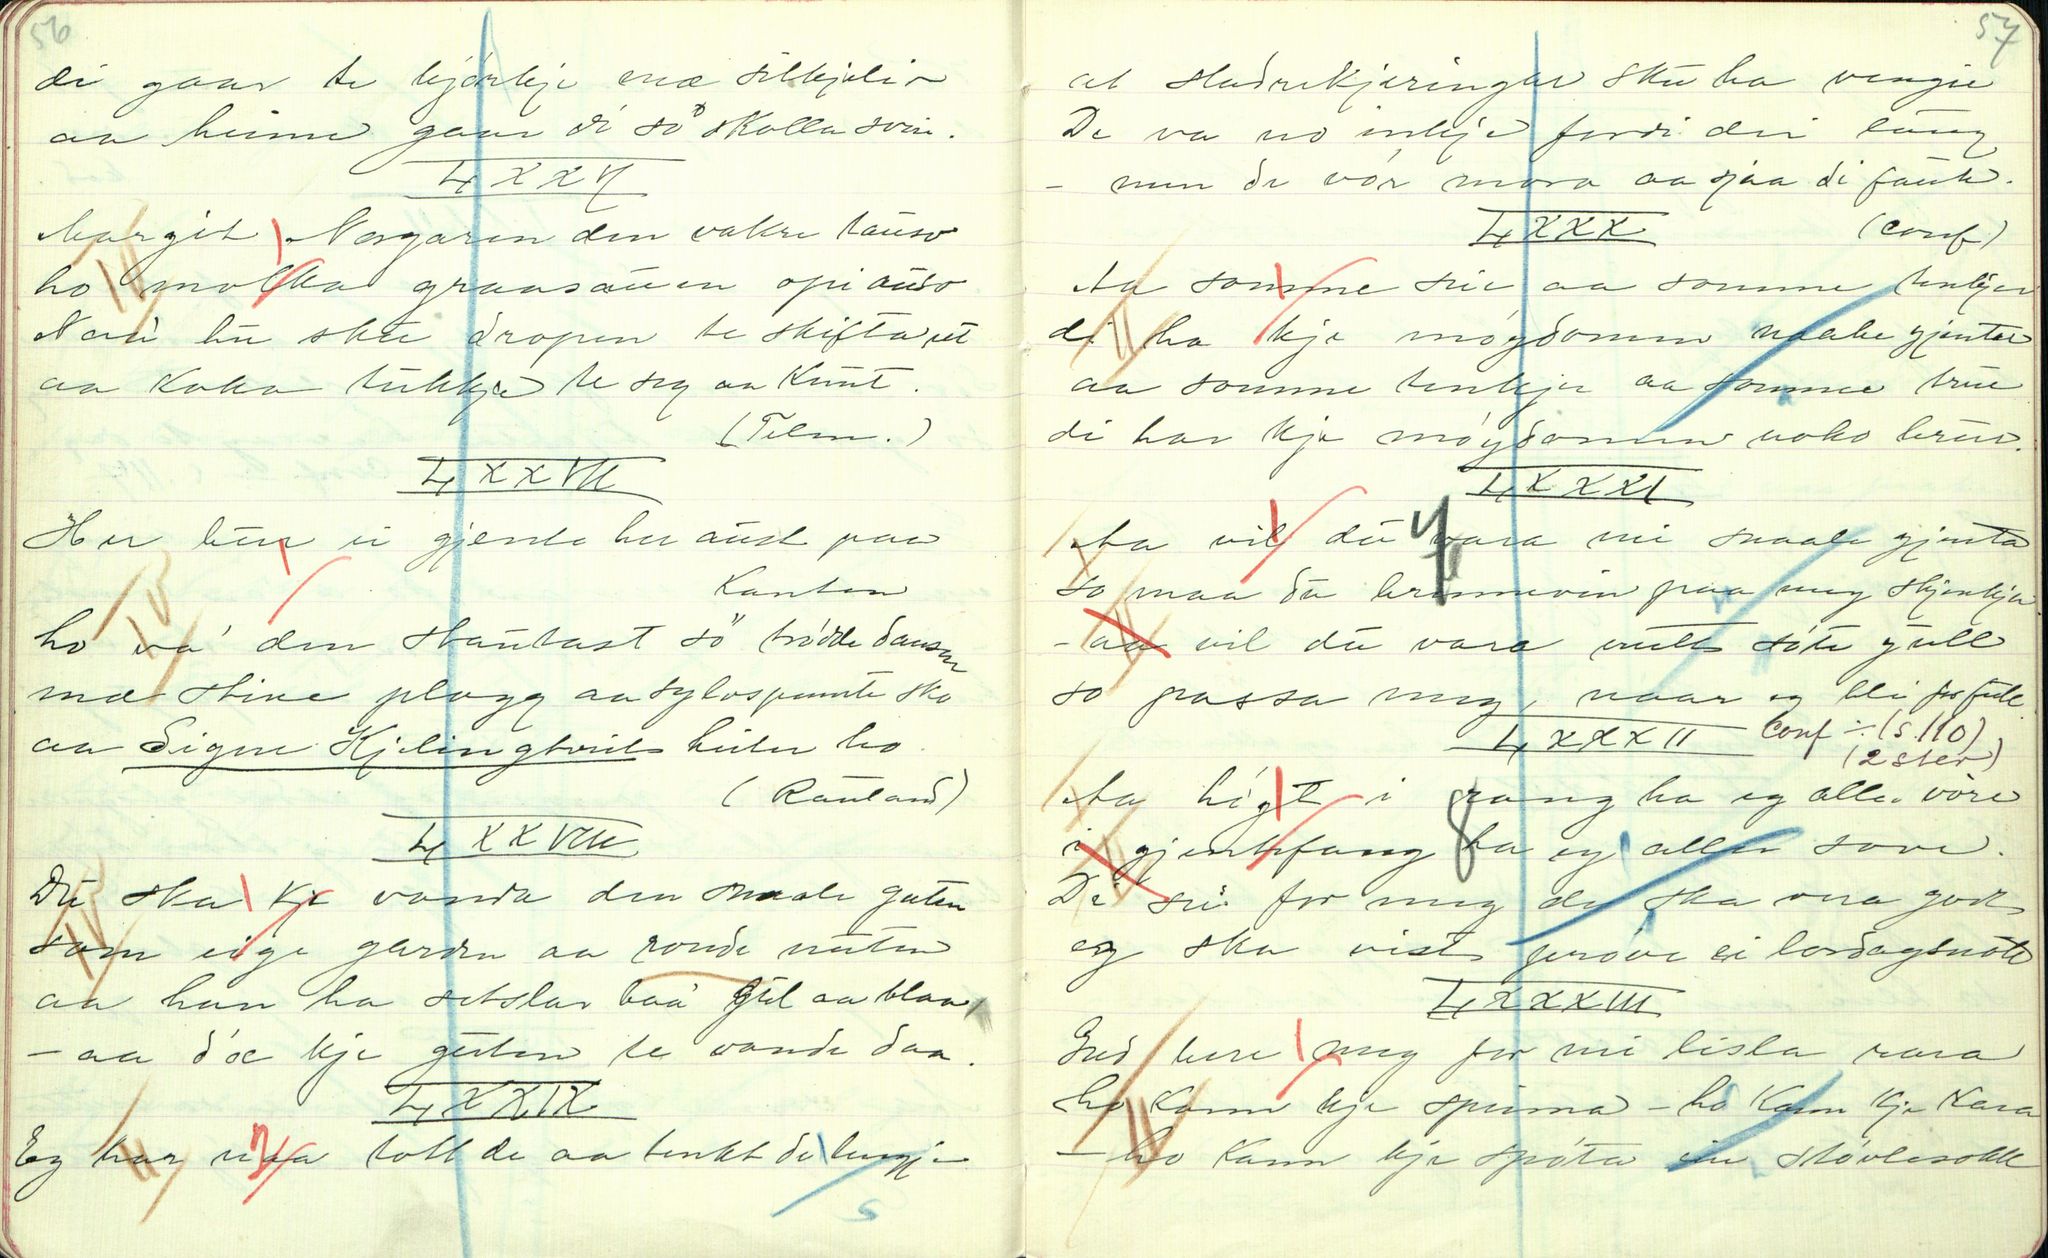 56
di gaar te kjørkje mæ silkjeliv
aa heime gaar di so skolla svin.
LXXVI
Margit Norgaren den vakre tause
ho molka graasauen opi ause
Naa hu sku dropen te skifta ut
aa koka tukkje te seg aa Knut.
(Telem.)
LXXVII
Her bur ei gjente her aust paa
Kanten
ho va den stautast so trødde dansen
mæ stive plagg aa sylvspente sko
aa Signe Kjelingtveit heiter ho.
(Rauland)
LXXVIII
Du ska kje vanda den snaale guten
som eige garden aa ronde nuten
aa han ha setslar baa gul aa blaa,
– aa d'æ kje guten te vande daa.
LXXIX
Eg har naa tott de aa tenkt de lengje
57
at sladrekjeringar sku ha vengje
De va no inkje fordi dei laug
– men de vór mora aa sjaa di fauk.
LXXX
(conf)
Aa somme seie aa somme tenkjer
di ha kje møydomen naake gjenter
aa somme tenkje aa somme true
di har kje møydomen noko brur.
LXXXI
Aa vil du vara mi snaale gjenta
so maa du brennevin paa meg skjenkje
– aa vil du vara mitt søte gull
so passa meg, naar eg bli for full.
LXXXII
conf ÷ (s. 110)
(2 ster)
Aa høgt i rang ha eg aller vóre
i gjentefang ha eg aller sove.
Di seie for meg de ska vera godt
eg ska visst prøve ei lordagsnott
LXXXIII
Gud bere meg for mi lisla rara
ho kann kje spinna – ho kann kje kara
– ho kann kje spøta ein støvlesokk
7
8